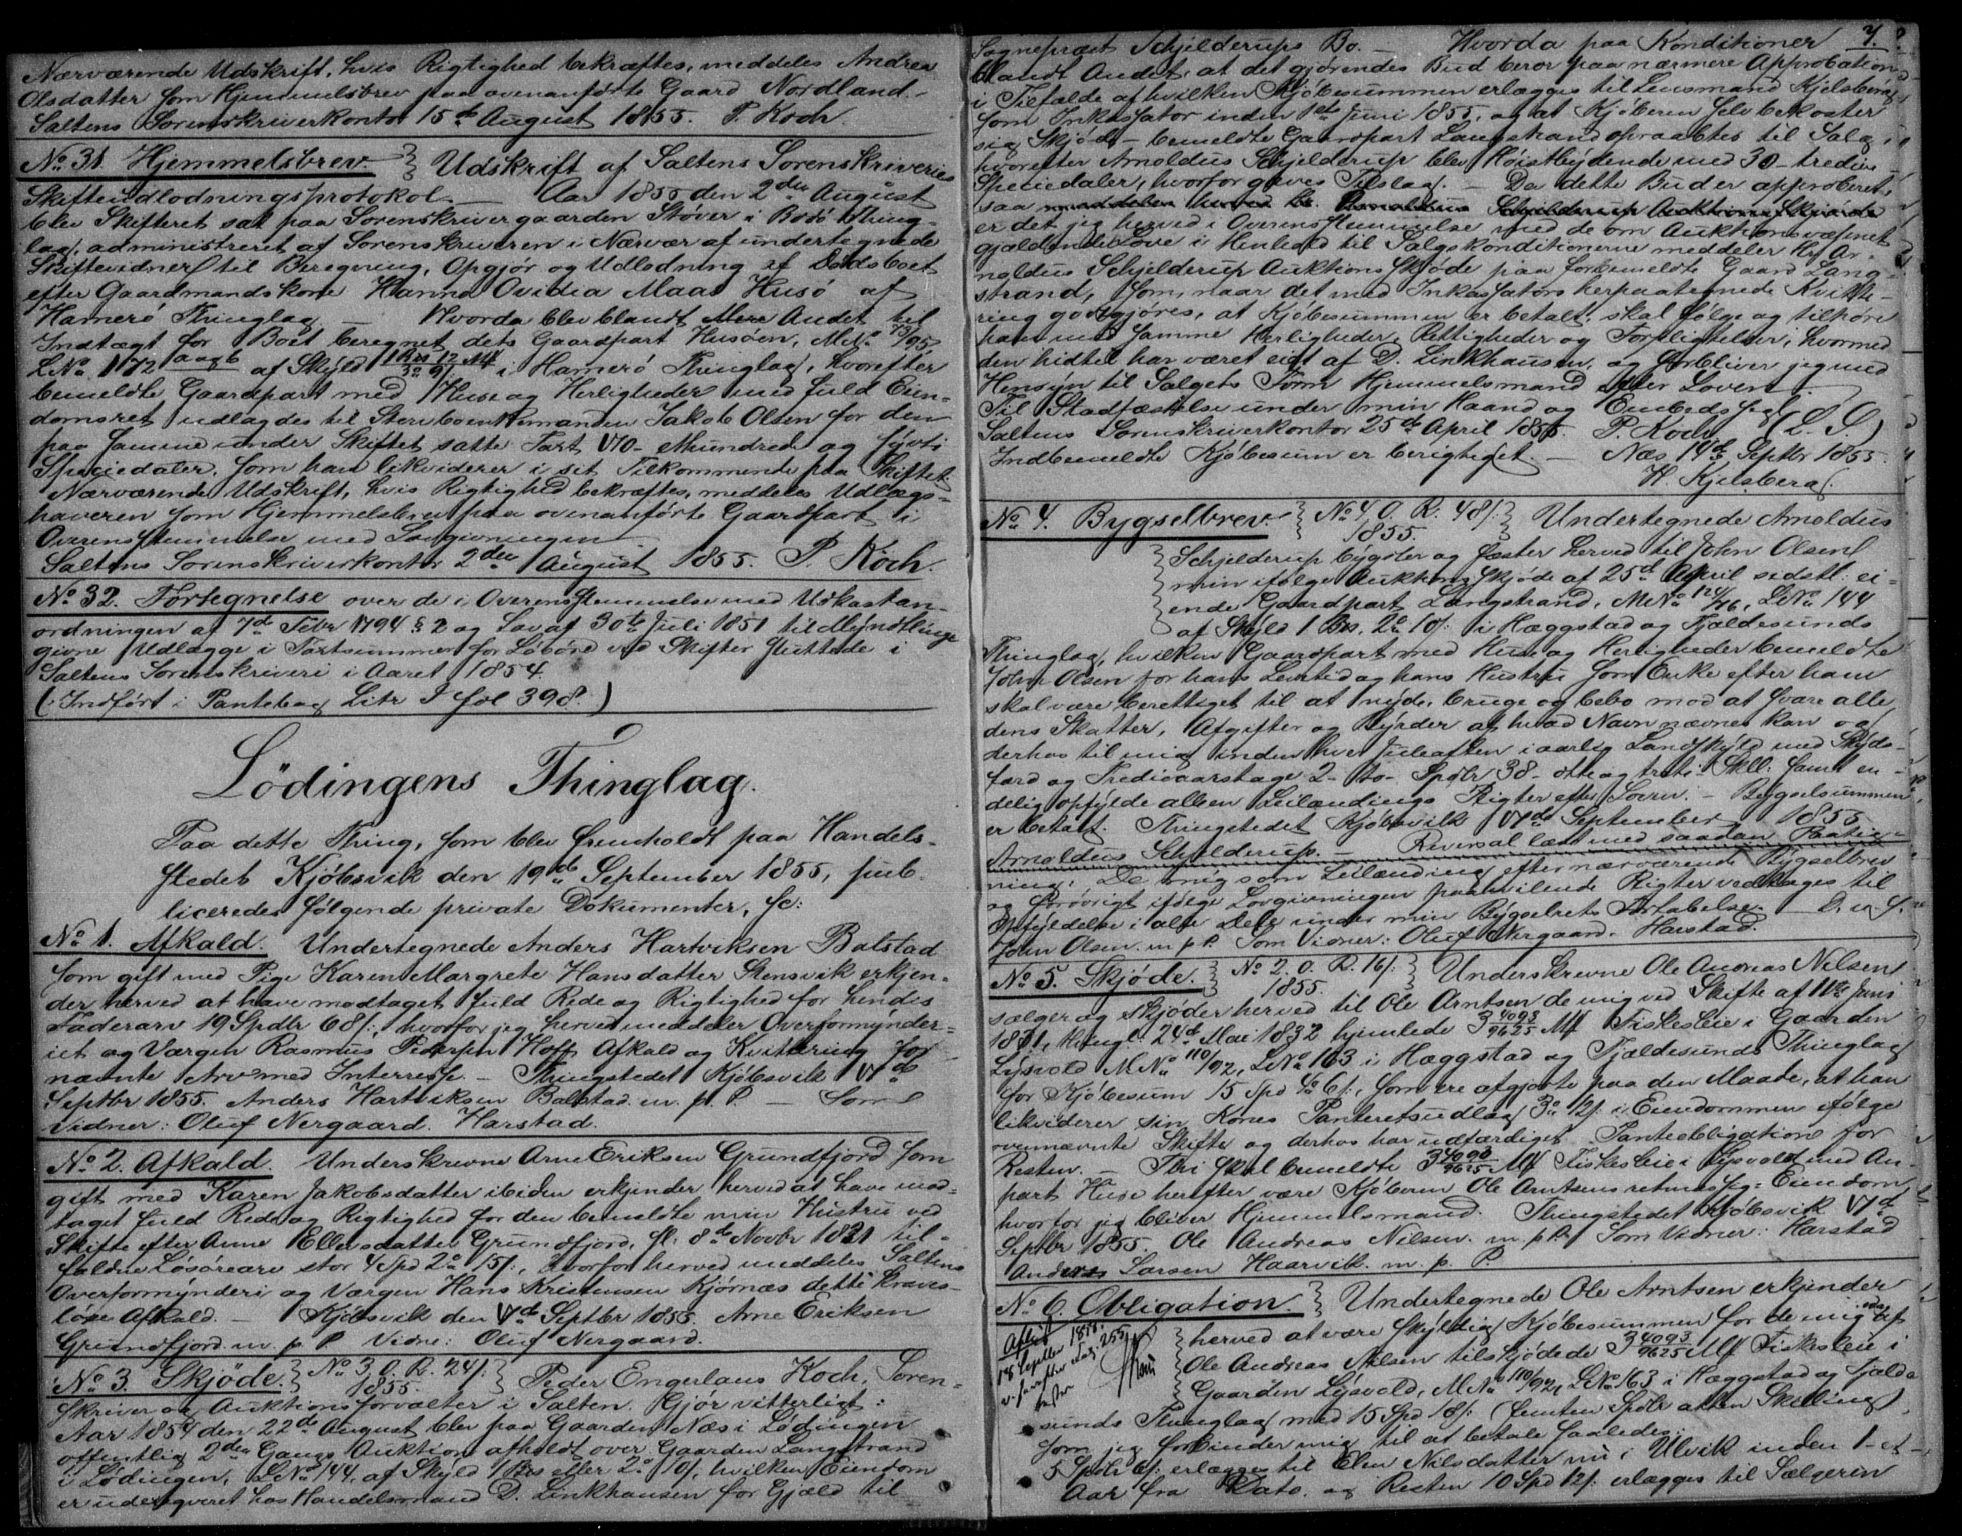 Nærværende Udskrift, hvis Rigtighed bekræftes, meddeles Andrea
Olsdatter som Hjemmelsbrev paa ovenanførte Gaard Nordland.
Saltens Sorenskriverkontor 15de August 1855. P. Koch.
No 31. Hjemmelsbrev. Udskrift af Saltens Sorenskriveries
Skifteudlodningsprotokol. Aar 1855 den 2den August
blev Skifteret sat paa Sorenskrivergaarden Støver i Bodø Thing-
lag, administreret af Sorenskriveren i Nærvær af undertegnede
Skiftevidner til Beregning, Opgjør og Udlodning af Dødsboet
efter Gaardmandskone Hanna Ovidia Maas Husö af
Hamerö Thinglag Hvorda blev blandt Mere Andet til
Indtægt for Boet beregnet dets Gaardpart Husöen, MNo 73/95
LNo 172 aagb af Skyld i Hamerö Thinglag, hvorefter
bemeldte Gaardpart med Huse og Herligheder med fuld Eien-
domsret udlagdes til Sterboenkemanden Jakob Olsen for den
paa samme under Skiftet satte Taxt 140 - Hundrede og førti
Speciedaler, som han likviderer i sit Tilkommende paa Skiftet.
Nærværende Udskrift, hvis Rigtighed bekræftes, meddeles Udlægs-
haveren som Hjemmelsbrev paa ovenanførte Gaardpart i
Overensstemmelse med Lovgivningen
Saltens Sorenskriverkontor 2den August 1855. P. Koch.
No 32. Fortegnelse over de i Overensstemmelse med Udkastan-
ordningen af 7de Febr 1794 § 2 og Lov af 30te Juli 1851 til Myndtlinge
givne Udlægge i Taxtsummer for Løsøre ved Skifter sluttede i
Saltens Sorenskriveri i Aaret 1854
(Indført i Pantebog Litr I fol 398.)
Lödingens Thinglag.
Paa dette Thing, som blev fremholdt paa Handels-
stedet Kjöbsvik den 19de September 1855, pub-
liceredes følgende private Dokumenter, sc:
No 1. Afkald. Undertegnede Anders Hartviksen Balstad
som gift med Pige Karen Margrete Hansdatter Stensvik erkjen-
der herved at have modtaget fuld Rede og Rigtighed for hendes
Faderarv 19 Spdlr 68 s, hvorfor jeg herved meddeler Overformynder-
iet og Værgen Rasmus Pedersen Hoff Afkald og Kvittering for
nævnte Arv med Interresse. - Thingstedet Kjöbsvik 19de
Septbr 1855. Anders Hartviksen Balstad m. p. P. - Som
Vidner: Oluf Nergaard. Harstad.
No 2. Afkald. Underskrevne Arne Eriksen Grundfjord som
gift med Karen Jakobsdatter ibiden erkjender herved at have mod-
taget fuld Rede og Rigtighed for den bemeldte min Hustru ved
Skifte efter Anne Ellensdatter Grundfjord, sl. 8de Novbr 1831 til-
faldne Løsørearv stor 4 Spd 2o 15 s, hvorfor herved meddeles Saltens
Overformynderi og Værgen Hans Kristensen Kjörnæs dette kraves-
løse Afkald. - Kjöbsvik den 19de Septbr 1855. Arne Eriksen
Grundfjord m. p. P. Vidne: Oluf Nergaard.
No 3. Skjöde. No 3. O. R. 24 s. 1855. Peder Engerlaus Koch, Soren-
skriver og Auktionsforvalter i Salten. Gjör vitterligt:
Aar 1854 den 22de August blev paa Gaarden Næs i Lödingen
offentlig 2den Gangs Auktion afholdt over Gaarden Langstrand
i Lödingen, LNo 144, af Skyld 1 Bs eller 2o 10 s, hvilken Eiendom
er udexqveret hos Handelsmand D. Linkhausen for Gjæld til
7.
Sogneprest Schjelderups Bo. - Hvorda paa Konditioner
blandt Andet, at det gjørendes Bud beror paa nærmere Approbation,
i Tilfælde af hvilken Kjöbesummen erlægges til Lensmand Kjelsberg
som Inkassator inden 1ste Juni 1855, og at Kjöberen selv bekoster
sig Skjöde - bemeldte Gaardpart Langstrand opraabtes til Salg,
hvorefter Arnoldus Schjelderup blev Höistbydende med 30 - tredive
Speciedaler, hvorfor gaves Tilslag. - Da dette Bud er approberet,
saa meddeles herved Hr. Arnoldus Schjelderup Auktions Skjöde
er det jeg herved i Overensstemmelse med de om Auktionsvæsnet
gjældende Love i Henhold til Salgskonditionerne meddeler Hr Ar-
noldus Schjelderup Auktions Skjöde paa forbemeldte Gaard Lang-
strand, som, naar det med Inkassators herpaategnede Kvitte-
ring godtgjøres, at Kjöbesummen er betalt, skal følge og tilhøre
ham med samme Herligheder, Rettigheder og Forpligtelser, hvormed
den hidtil har været eiet af D. Linkhausen, og forbliver jeg med
Hensyn til Salgets Form Hjemmelsmand efter Loven.
Til Stadfæstelse under min Haand og Embedssegl
Saltens Sorenskriverkontor 25de April 1855. P. Koch (L. S.)
Indbemeldte Kjöbesum er berigtiget. - Næs 14de Septbr 1855.
H. Kjelsberg.
No 4. Bygselbrev. No 4. O. R. 48 s. 1855. Undertegnede Arnoldus
Schjelderup bygsler og fæster herved til John Olsen
min ifølge Auktions Skjöde af 25de April sidstl. ei-
ende Gaardpart Langstrand, MNo 124/76, LNo 144
af Skyld 1 Bs. 2o 10 s. i Hæggstad og Fjældesunds
Thinglag, hvilken Gaardpart med Huse og Herligheder bemeldte
John Olsen for hans Levetid og hans Hustru som Enke efter ham
skal være berettiget til at nyde, bruge og bebo mod at svare alle
dens Skatter, Afgifter og Byrder af hvad Navn nævnes kan og
derhos til mig inden hver Juleaften i aarlig Landskyld med Skyds-
færd og Trediaarstage 2 - to - Spdlr 38 - otte og treti - Skll. samt en-
delig opfylde alle en Leilændings Pligter efter Loven. - Bygselsummen
er betalt. Thingstedet Kjöbsvik 19de September 1855
Arnoldus Schjelderup. - Reversal læst med saadan Paateg-
ning: De mig som Leilænding efter nærværende Bygselbrev
og forøvrigt ifølge Lovgivningen paahvilende Pligter vedtages til
Opfyldelse i alle Dele under min Bygselrets Fortabelse. - D. u. s.
John Olsen. m. p. P. Som Vidner: Oluf Nergaard. Harstad.
No 5. Skjöde. No 2. O. R. 16 s. 1855. Underskrevne Ole Andreas Nilsen
sælger og skjöder herved til Ole Arntsen de mig ved Skifte af 11te Juni
1831, thingl. 24de Mai 1832 hjemlede 3 4093/9625 Mk Fiskesleie i Gaarden
Lysvold MNo 110/92, LNo 163 i Hæggstad og Fjældesunds Thinglag
for Kjöbesum 15 Spd 18 s., som ere afgjorte paa den Maade, at han
likviderer sin Kones Panteretsudlæg 3o 12 s. i Eiendommen ifølge
ovennævnte Skifte og derhos har udfærdiget Panteobligation for
Resten. - Thi skal bemeldte 3 4093/9625 Mk Fiskesleie i Lysvold med An-
part Huse herefter være Kjöberen Ole Arntsens retmæssige Eiendom,
hvorfor jeg bliver Hjemmelsmand. Thingstedet Kjöbsvik 19de
Septbr 1855. Ole Andreas Nilsen. m. p. P. Som Vidner: Harstad
Anders Larsen Haarvik. m. p. P.
No 6. Obligation. Undertegnede Ole Arntsen erkjender
herved at være skyldig Kjöbesummen for de mig af
Ole Andreas Nilsen tilskjödede 3 4093/9625 Mk Fiskesleie i
Gaarden Lysvold, MNo 110/92, LNo 163 i Hæggstad og Fjælde-
sunds Thinglag med 15 Spd 18 s. (femten Spdlr atten Skilling),
som jeg forbinder mig til at betale saaledes:
5 Spdlr 6 s. erlægges til Elen Nilsdatter nu i Ulvik inden 1 - et -
Aar fra Dato, og Resten 10 Spd 12 s. erlægges til Sælgeren